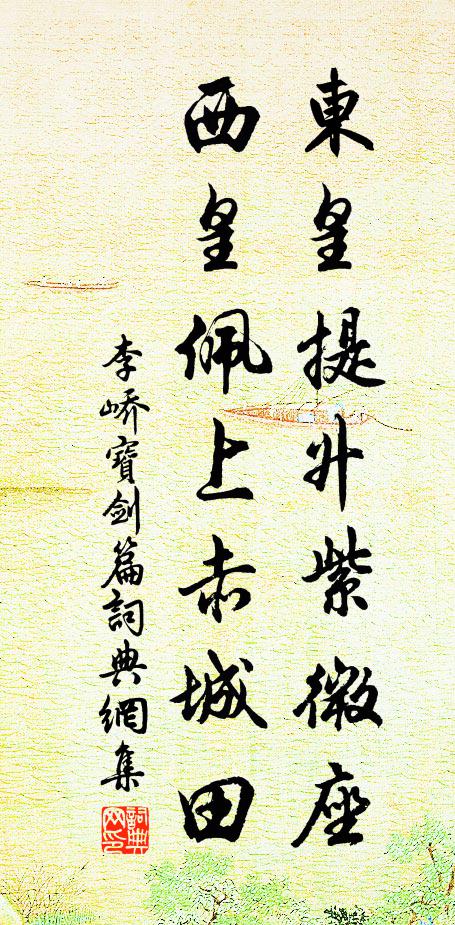 東皇提升紫微座
西皇佩上赤城田
李嶠寶劍篇詞典網集
詞典
网印